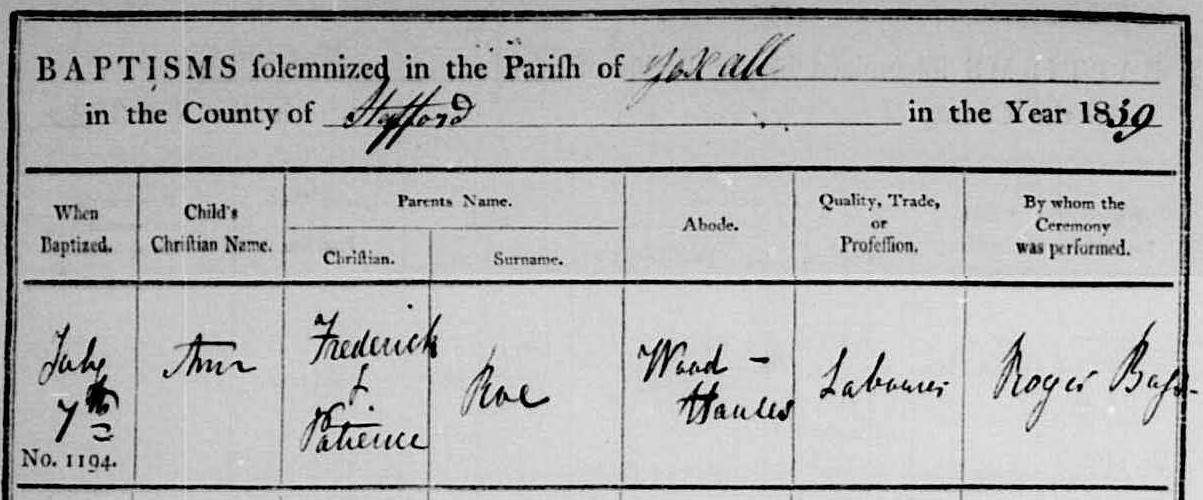 BAPTISMS ſolemnized in the Pariſh of Yoxall
in the County of Stafford in the Year 1839
When Baptized.
Child's Chriſtian Name.
Parents Name.
Chriſtian.
Surname.
Abode.
Quality, Trade, or Profeſſion.
By whom the Ceremony was performed.
July 7th
No. 1194.
Ann
Frederick & Patience
Roe
Wood-
Labourer
Roger